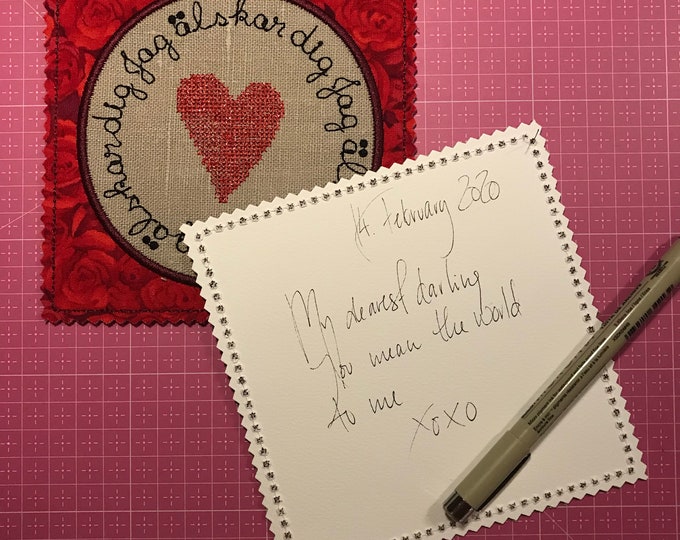 Jag älskar dig Jag älskar dig Jag älskar dig
14. February 2020
My dearest darling
You mean the world
to me
xoxo